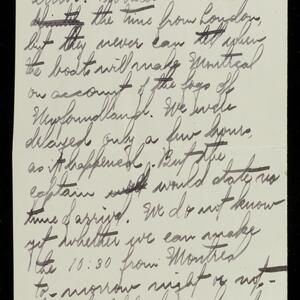 the time from London,
but they never can tell when
the boats will make Montreal
on account of the fogs of
Newfoundland. We were
delayed only a few hours,
as it happened. But the
captain would state no
time of arrival. We do not know
yet whether we can make
the 10:30 from Montreal
to-morrow night or not-